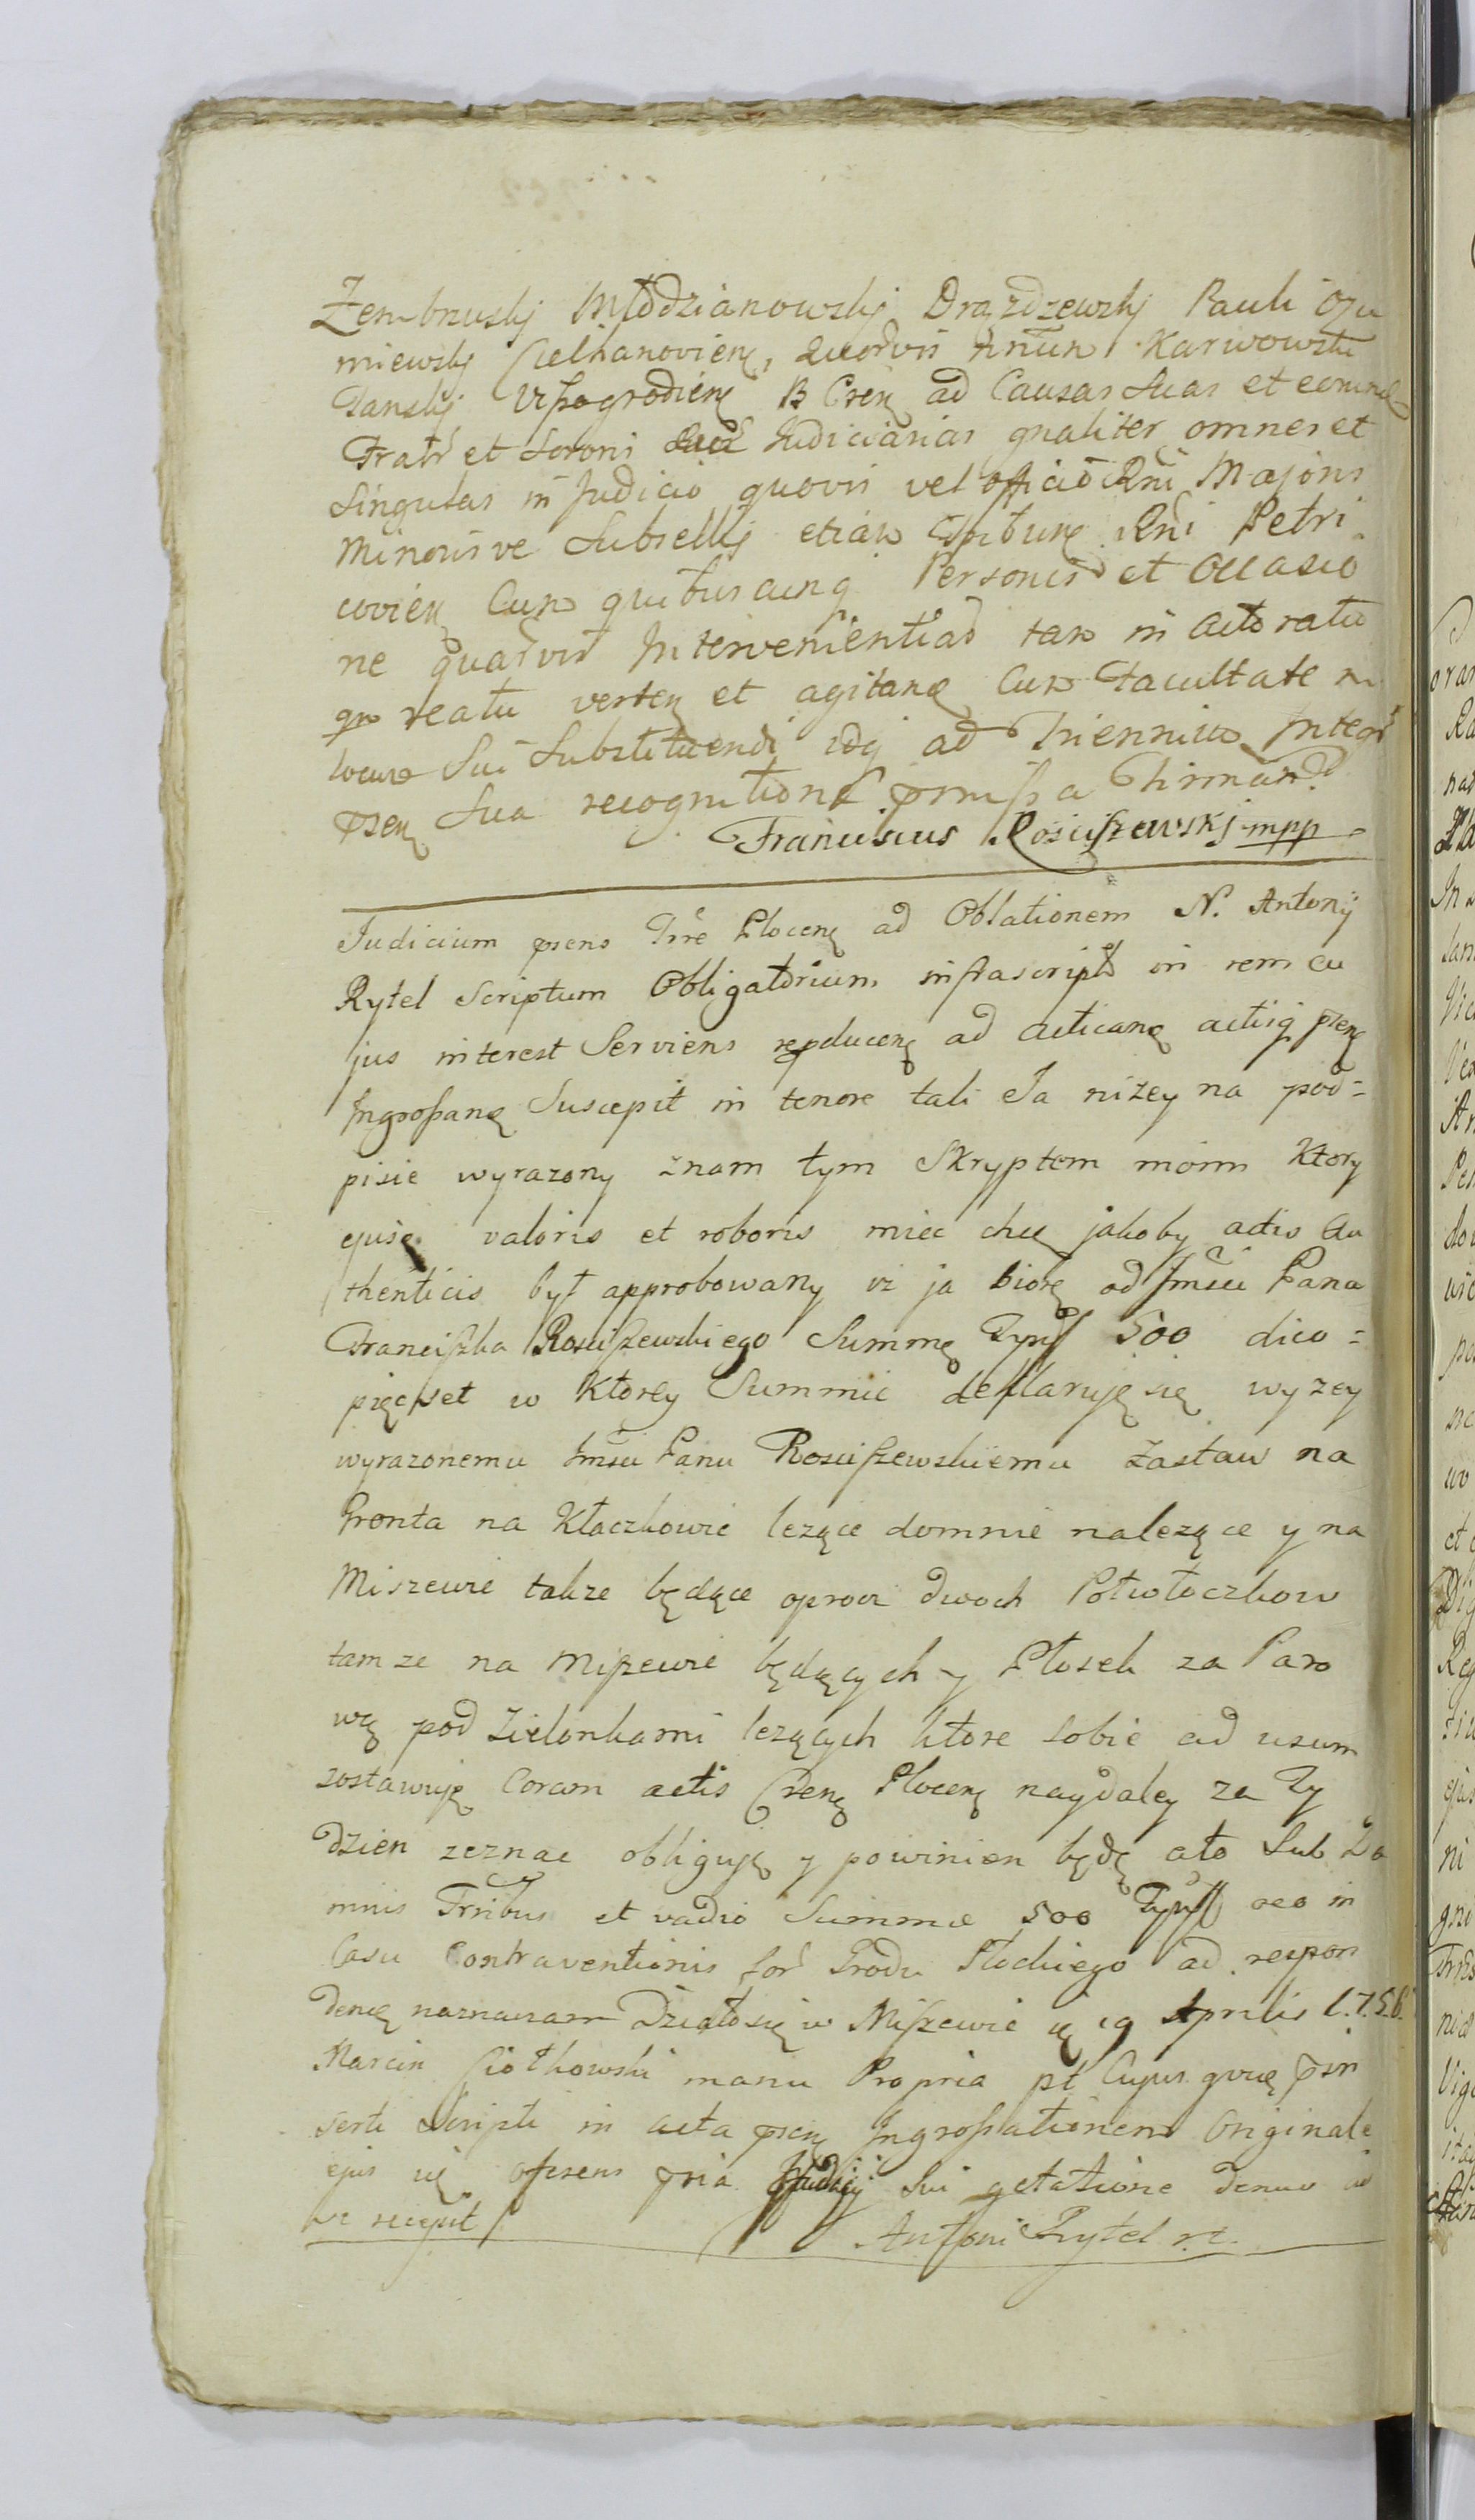 Zembrzuskj Młodzianowskj Drązdzewskj Pauli Ozu
miewskj Ciechanovien, quorvis Antun Karwowski
Danskj Vissogrodien B Cren ad Causas suas et comune
Fratr et Soroni suae Judiciarias gnaliter omnes et
singulas in Judicio quovis vel officio Rni Majoris
Minorisve Subsellij etiam Tribun Rni Petri
covien Cum quibuscunq Personis et occasio
ne quavis Intervenientiad tam in actoratu
qm reatu verten et agitan Cum Facultate in
locum Sui Substituendi idq ad Triennium Integr
psen Sua recognitione pmissa Firmand
Franciscus Rosciszewskj mpp
Judicium psens Trre Plocen ad Oblationem N. Antonij
Rytel Scriptum Obligatorium infrascript in rem cu
jus interest Serviens repducen ad acticand actisq psen
Ingrossand Suscepit in tenore tali Ja nizey na pod=
pisie wyrazony znam tym Skryptem moim Ktory
ejusq valoris et roboris miec chcę jakoby actis Au
thenticis był approbowany iz ja biorę od Jmsci Pana
Franciszka Rosciszewskiego Summę Tynf 500 dico=
pięcset w Ktorey Summie deklaruję się wyzey
wyrazonemu Jmsci Panu Rosciszewskiemu Zastaw na
Gronta na Kłaczkowie lezące domnie nalezące y na
Miszewie takze będące oprocz dwoch Połwłoczkow
tamze na Miszewie będących y Płosek za Paro
wą pod Zielonkami lezących ktore sobie ad usum
zostawuję Coram actis Cren Plocen naydaley za Ty
dzien zeznac obliguję y powinien będę a to Sub Da
mnis Trribus et vadio Summae 500 Tynf reo in
Casu Contraventionis for Grodu Płockiego ad respon
dend naznaczam Działo się w Miszewie d 19 Aprilis 1.7.5.6.
Marcin Ciołkowski manu Propria pt Cujus quid psin
serti Scripti in acta psen Ingrossationem Originale
ejus id offerens pria Judicij Sui qetatione denuo ad
se recepit
Antoni Rytel rt.